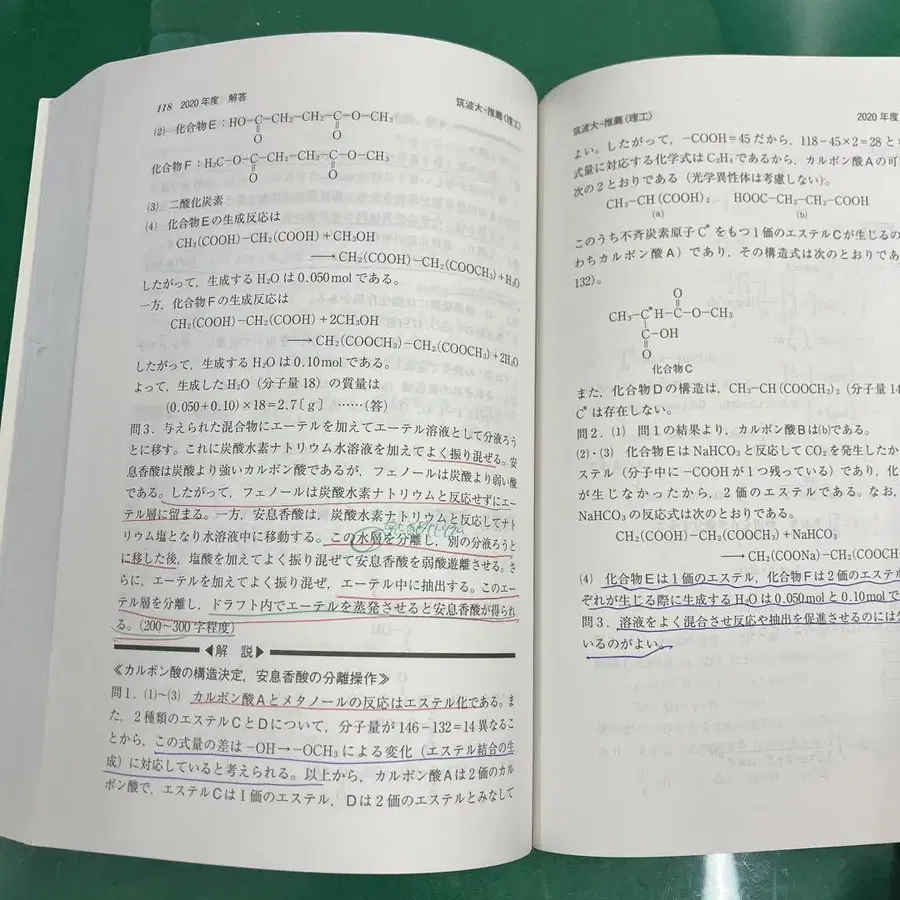 118 2020年度 解答
筑波大-推薦(理工)
(2) 化合物E:HO-C-CH₂-CH₂-C-O-CH₃
O O
化合物F:H₃C-O-C-CH₂-CH₂-C-O-CH₃
O O
(3) 二酸化炭素
(4) 化合物Eの生成反応は
CH₂(COOH)-CH₂(COOH)+CH₃OH
→CH₂(COOH)-CH₂(COOCH₃)+H₂O
したがって,生成するH₂Oは0.050molである。
一方,化合物Fの生成反応は
CH₂(COOH)-CH₂(COOH)+2CH₃OH
→CH₂(COOCH₃)-CH₂(COOCH₃)+2H₂O
したがって,生成するH₂Oは0.10molである。
よって,生成したH₂O(分子量18)の質量は
(0.050+0.10)×18=2.7〔g〕 ……(答)
問3.与えられた混合物にエーテルを加えてエーテル溶液として分液ろう
とに移す。これに炭酸水素ナトリウム水溶液を加えてよく振り混ぜる。安
息香酸は炭酸より強いカルボン酸であるが,フェノールは炭酸より弱い酸
である。したがって,フェノールは炭酸水素ナトリウムと反応せずにエー
テル層に留まる。一方,安息香酸は,炭酸水素ナトリウムと反応してナト
リウム塩となり水溶液中に移動する。この水層を分離し,別の分液ろうと
に移した後,塩酸を加えてよく振り混ぜて安息香酸を弱酸遊離させる。さ
らに,エーテルを加えてよく振り混ぜ,エーテル中に抽出する。このエー
テル層を分離し,ドラフト内でエーテルを蒸発させると安息香酸が得られ
る。(200~300字程度)
◀解 説▶
≪カルボン酸の構造決定,安息香酸の分離操作≫
問1.(1)~(3) カルボン酸Aとメタノールの反応はエステル化である。ま
た,2種類のエステルCとDについて,分子量が146-132=14異なるこ
とから,この式量の差は-OH→-OCH₃による変化(エステル結合の生
成)に対応していると考えられる。以上から,カルボン酸Aは2価のカル
ボン酸で,エステルCは1価のエステル,Dは2価のエステルとみなして
筑波大-推薦(理工)
2020年度
よい。したがって,-COOH=45だから,118-45×2=28と
式量に対応する化学式はC₂H₄であるから,カルボン酸Aの可
次の2とおりである(光学異性体は考慮しない)。
CH₃-CH(COOH)₂ HOOC-CH₂-CH₂-COOH
(a) (b)
このうち不斉炭素原子C*をもつ1価のエステルCが生じるの
わちカルボン酸A)であり,その構造式は次のとおりであ
132)。
O
CH₃-C*H-C-O-CH₃
C-OH
O
化合物C
また,化合物Dの構造は,CH₃-CH(COOCH₃)₂(分子量14
C*は存在しない。
問2.(1) 問1の結果より,カルボン酸Bは(b)である。
(2)・(3) 化合物EはNaHCO₃と反応してCO₂を発生したか
ステル(分子中に-COOHが1つ残っている)であり,化
が生じなかったから,2価のエステルである。なお,
NaHCO₃の反応式は次のとおりである。
CH₂(COOH)-CH₂(COOCH₃)+NaHCO₃
→CH₂(COONa)-CH₂(COOCH
(4) 化合物Eは1価のエステル,化合物Fは2価のエステル
ぞれが生じる際に生成するH₂Oは0.050molと0.10molで
問3.溶液をよく混合させ反応や抽出を促進させるのには
いるのがよい。